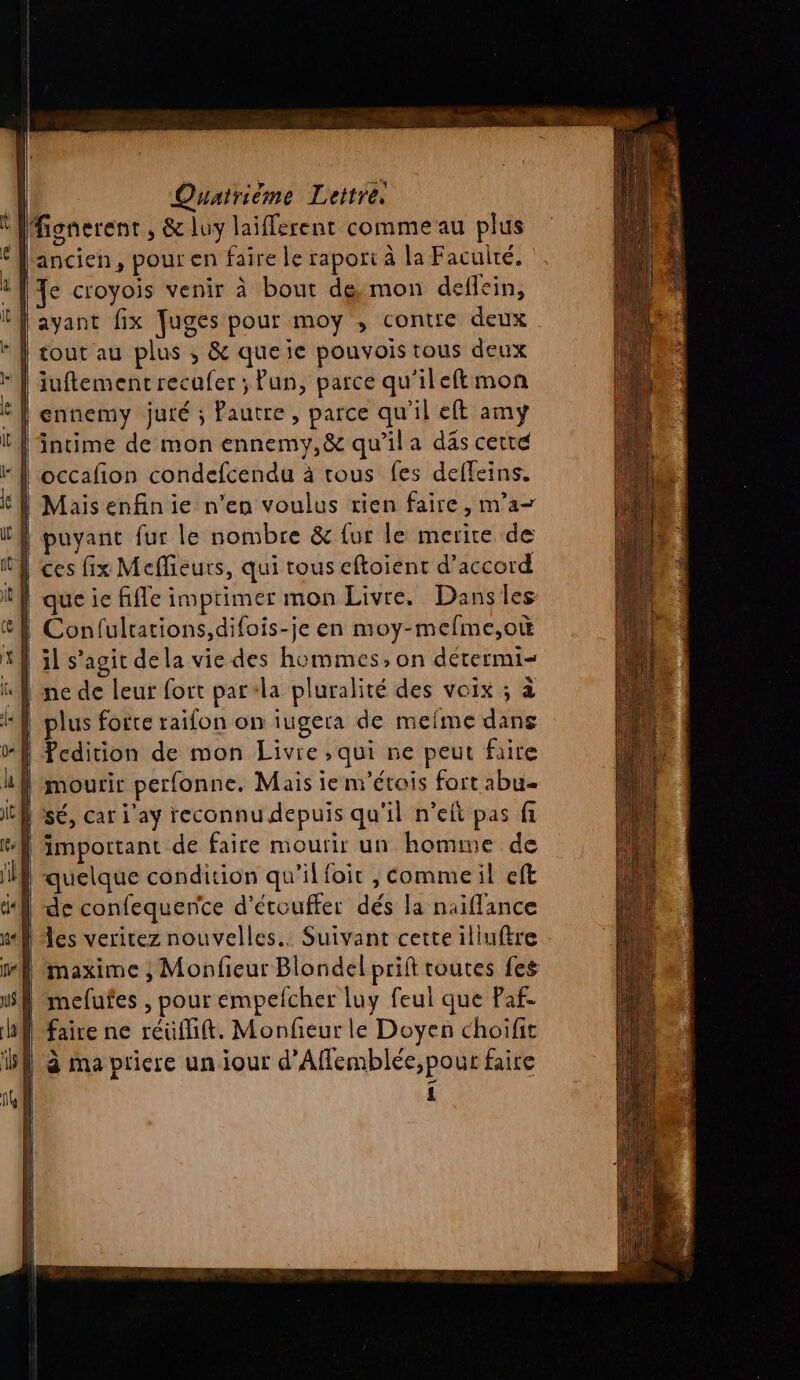 Quatriéme Lettre.
ſignerent, & luy laiſſerent comme au plus
ancien, pour en faire le raport à la Faculté.
Je croyois venir à bout de mon deſſein,
ayant ſix Juges pour moy, contre deux
tout au plus, & que ie pouvois tous deux
iuſtement recuſer; l'un, parce qu'il eſt mon
ennemy juré; l'autre, parce qu'il eſt amy
intime de mon ennemy, & qu'il a dãs cette
occaſion condeſcendu à tous ſes deſſeins.
Mais enfin ie n'en voulus rien faire, m'a-
puyant ſur le nombre & ſur le merite de
ces ſix Meſſieurs, qui tous eſtoient d'accord
que ie fiſſe imprimer mon Livre. Dans les
Conſultations, diſois-je en moy-meſme, où
il s'agit de la vie des hommes, on détermi-
ne de leur ſort par la pluralité des voix; à
plus forte raiſon on iugera de meſme dans
l'edition de mon Livre, qui ne peut faire
mourir perſonne. Mais ie m'étois fort abu-
sé, car i'ay reconnu depuis qu'il n'eſt pas ſi
important de faire mourir un homme de
quelque condition qu'il ſoit, comme il eſt
de conſequence d'étouffer dés la naiſſance
les veritez nouvelles. Suivant cette illuſtre
maxime, Monſieur Blondel priſt toutes ſes
meſures, pour empeſcher luy ſeul que l'af-
faire ne réüſſiſt. Monſieur le Doyen choiſit
à ma priere un iour d'Aſſemblée, pour faire
í